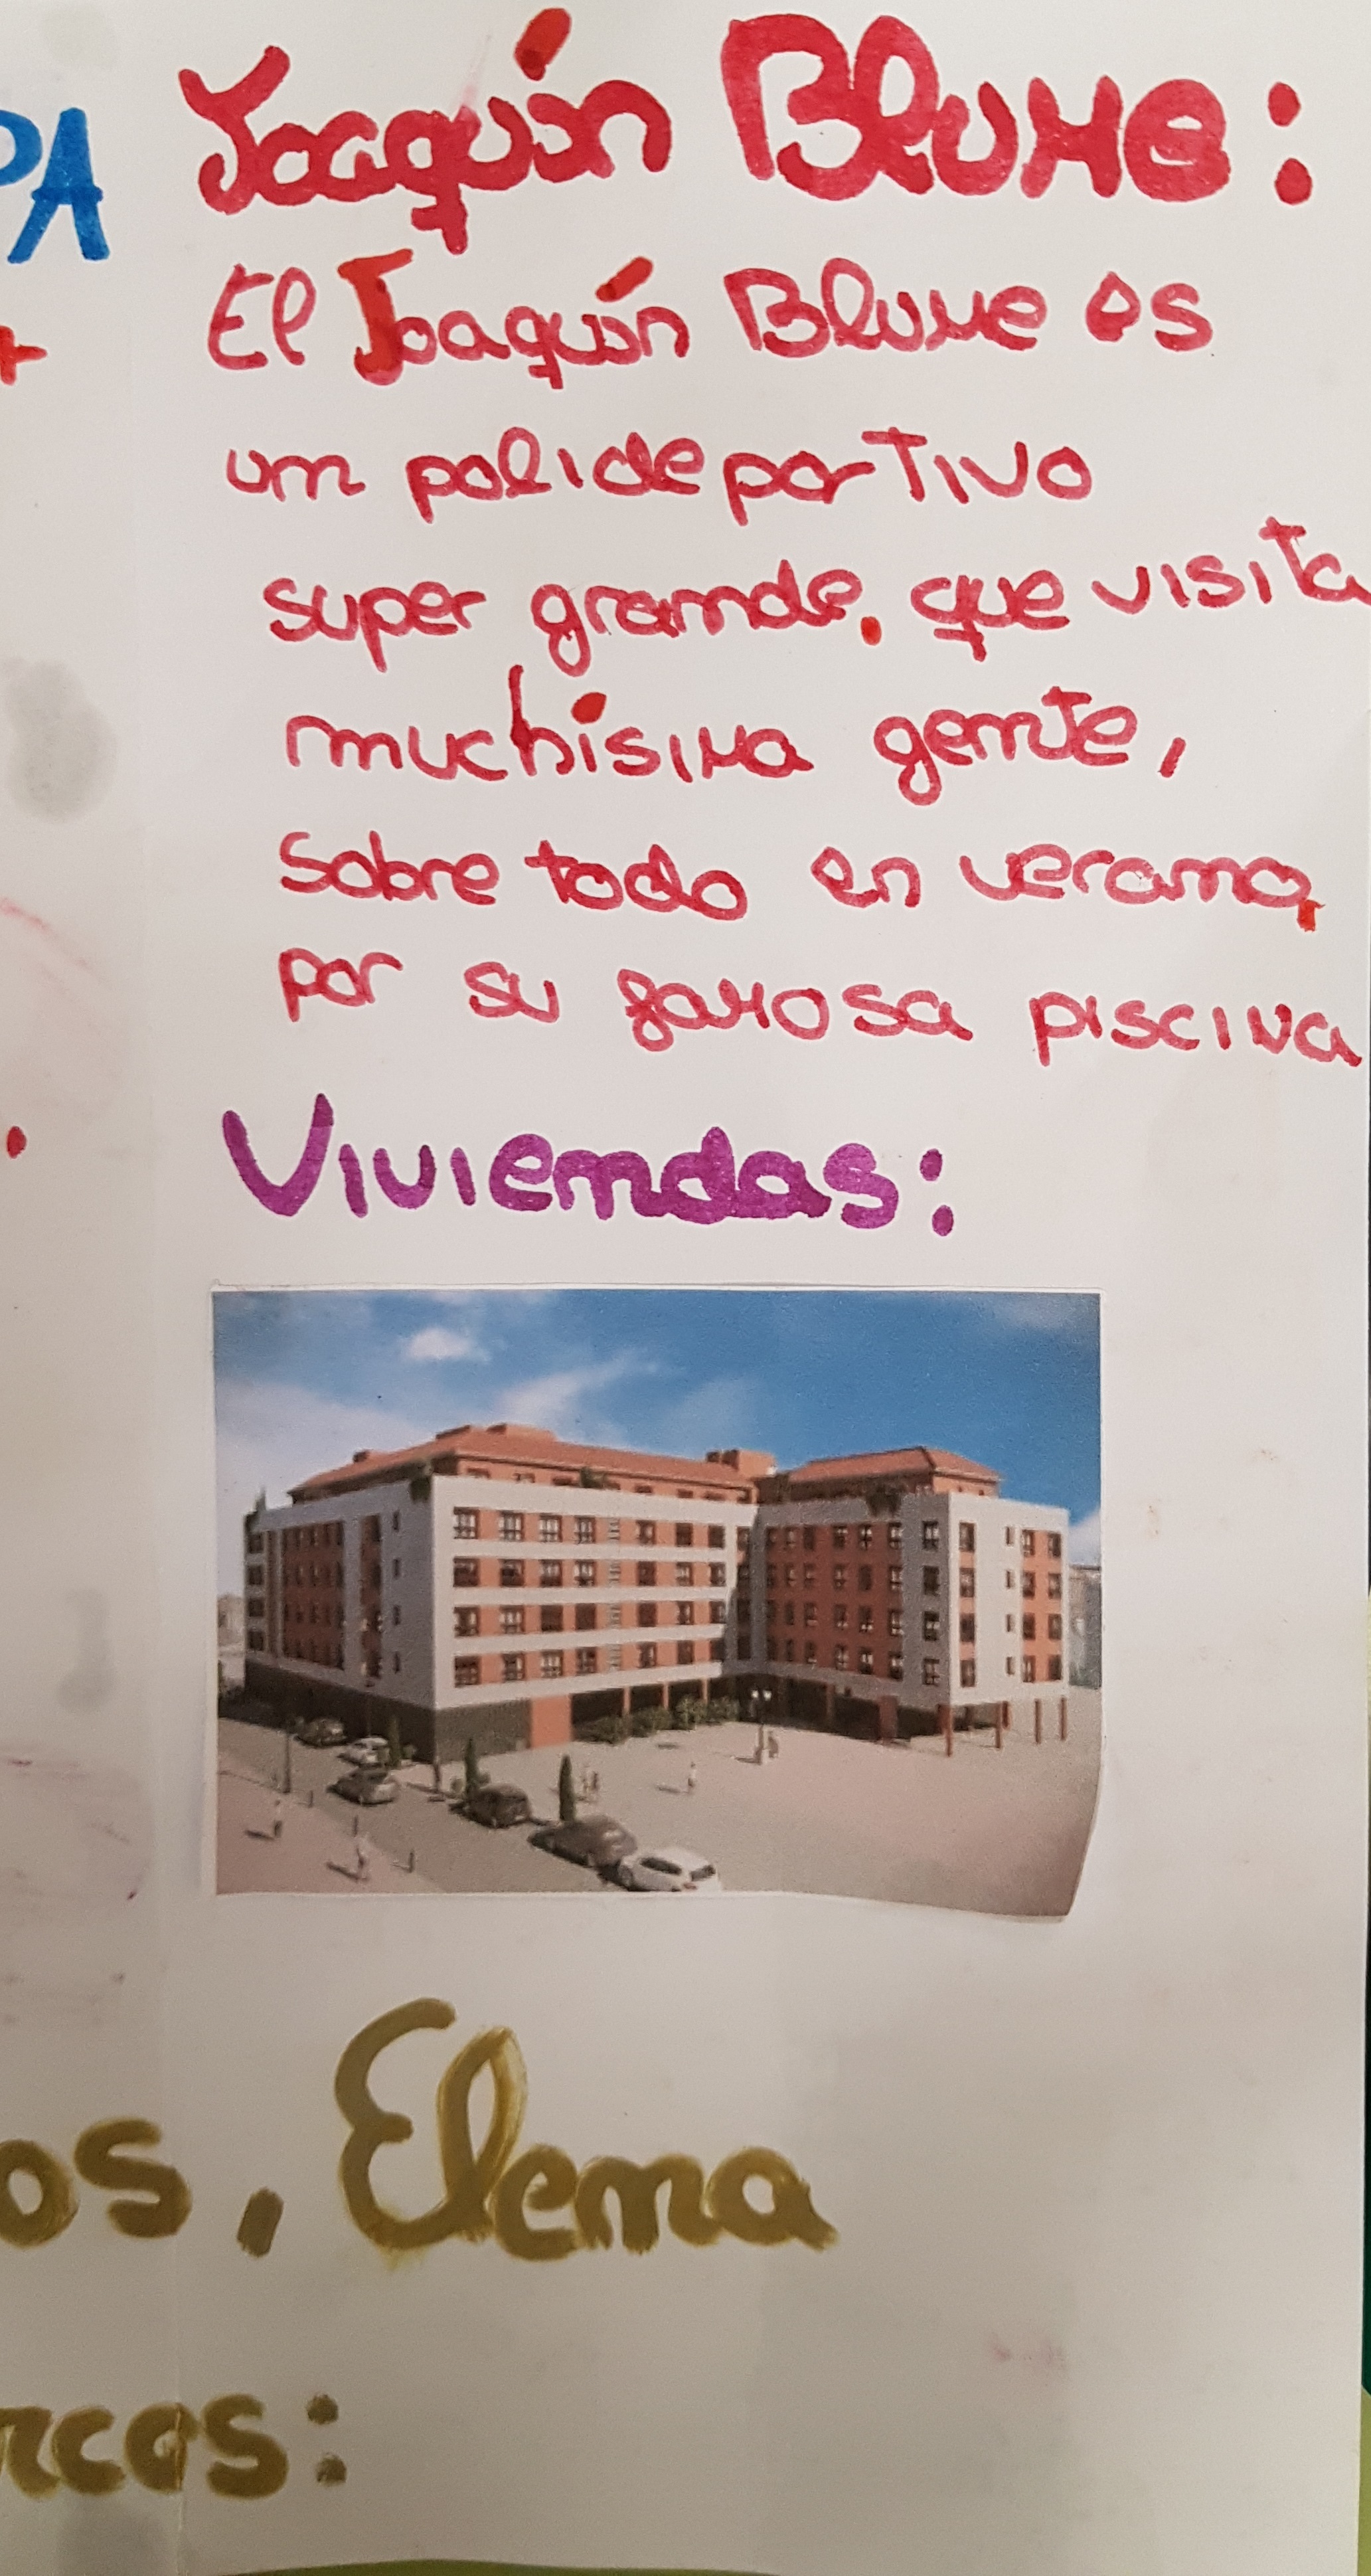 PA
Joaquín Blume:
El Joaquín Blume es
un polideportivo
super grande, que visita
muchísima gente,
sobre todo en verano,
por su famosa piscina
Viviendas:
os, Elena
rcos: